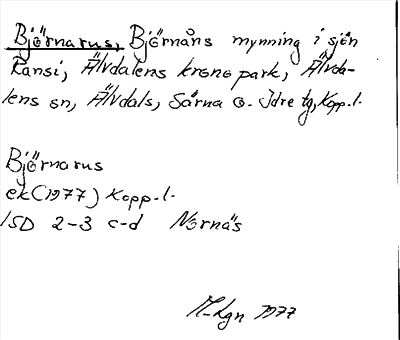 Björnarus, Björnåns mynning i sjön
Ransi, Älvdalens kronopark, Älvda-
lens sn, Älvdals, Särna o. Idre tg, Kopp.l.
Björnarus
ek (1977) Kopp.l.
15D 2-3 c-d Nornäs
1977